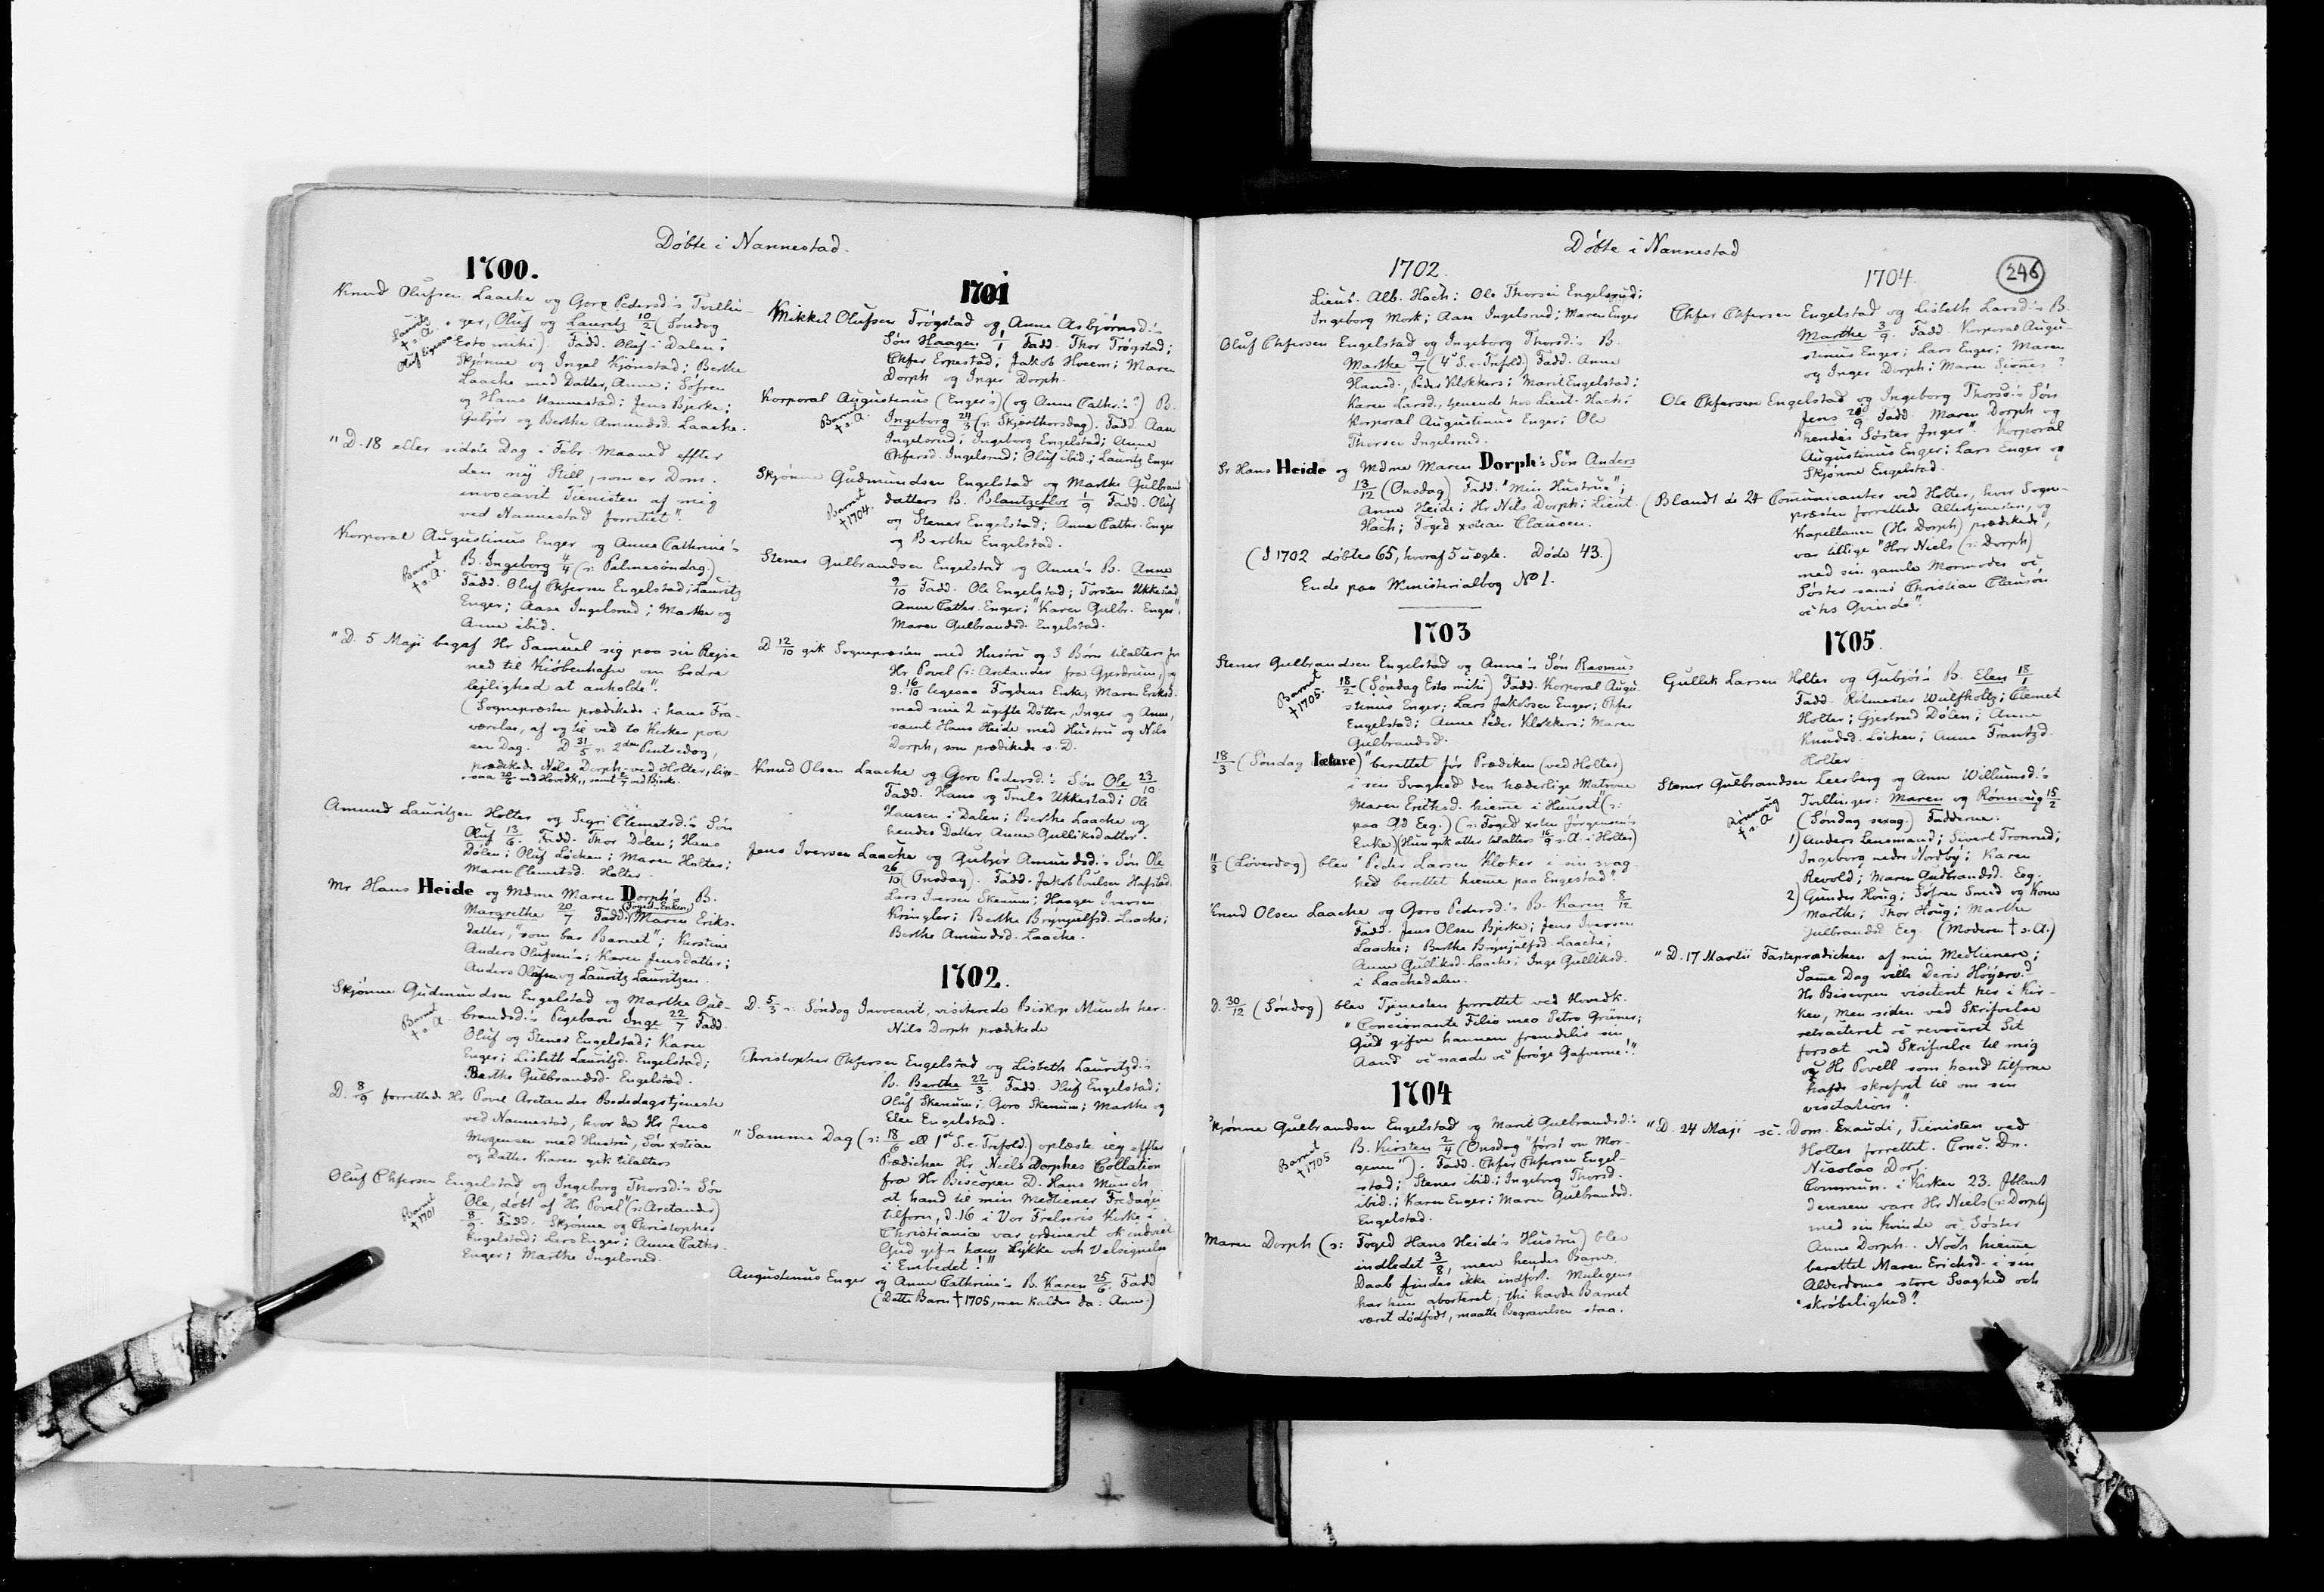 Döbte i Nannestad.
1700.
Knud Olufsen Laache og Goro Pedersd:s Tvillin-
ger, Oluf og Lauritz 10/2 (Søndag
Esto mihi). Fadd. Oluf i Dalen;
Skjønne og Ingel Kjönstad; Berthe
Laache med Datter, Anne; Söfren
og Hans Nannestad; Jens Bjerke;
Gubjör og Berthe Amundsd. Laache.
Lauritz
† s. A.
Oluf ligesaa
"D. 18 eller sidste Dag i Febr. Maaned effter
den nÿ Still, som er Dom.
invocavit Tienisten af mig
ved Nannestad forrettet".
Korporal Augustinus Enger og Anne Cathrine's
B. Ingeborg 4/4 (ɔ: Palmesöndag.)
Fadd. Oluf Chfersen Engelstad; Lauritz
Enger; Aase Ingelsrud; Marthe og
Anne ibid.
Barnet
† s. A.
"D. 5 Maji begaf Hr Samuel sig paa sin Rejse
ned til Kiöbenhafn om bedre
lejlighed at anholde".
(Sognepræsten prædikede i hans Fra-
værelse, af og til ved to Kirker paa
en Dag. D 31/5 ɔ: 2den Pintsedag,
prædikede Nils Dorph ved Holter, lige-
saa 20/6 ved Hovedk., samt 2/7 ved Bjerke.
Amund Lauritzen Holter og Sigri Clemetsd:s Søn
Oluf 13/6. Fadd. Thor Dölen; Hans
Dölen; Oluf Löchen; Maren Holter;
Maren Clemetsd. Holter.
Mr Hans Heide og Mdme Maren Dorph's B.
Margrethe 20/7 Fadd. (Foged-Enken) Maren Eriks-
datter, "som bar Barnet"; Kirstine
Anders Olufsen's; Karen Jensdatter;
Anders Olufsen og Lauritz Lauritzen.
Skjønne Gudmundsen Engelstad og Marthe Gul-
brandsd:s Pigebarn Inge 22/7 Fadd.
Oluf og Stener Engelstad; Karen
Enger; Lisbeth Lauritzd. Engelstad;
Berthe Gulbrandsd. Engelstad.
Barnet
† s. A.
D. 8/9 forrettede Hr Povel Arctander Bededagstjeneste
ved Nannestad, hvor da Hr Jens
Mogensen med Hustru, Søn xstian
og Datter Karen gik tilalters
Oluf Chfersen Engelstad og Ingeborg Thorsd:s Søn
Ole, döbt af "Hr Povel" (ɔ: Arctander)
8/9. Fadd. Skjønne og Christopher
Engelstad; Lars Enger; Anne Cathr.
Enger; Marthe Ingelsrud.
Barnet
† 1701
1701
Mikkel Olufsen Trögstad og Anne Asbjörnsd:s
Søn Haagen 1/1 Fadd. Thor Trögstad;
Chfer Erpestad; Jakob Hveem; Maren
Dorph og Inger Dorph.
Korporal Augustinus (Enger's) (og Anne Cathr:s?) B.
Ingeborg 24/3 (ɔ: Skjærthorsdag). Fadd. Aase
Ingelsrud; Ingeborg Engelstad; Anne
Chfersd. Ingelsrud; Oluf ibid.; Lauritz Enger
Barnet
† s. A.
Skjønne Gudmundsen Engelstad og Marthe Gulbrand
datters B. Blantzeflor 1/9 Fadd. Oluf
og Stener Engelstad; Anne Cathr. Enger
og Berthe Engelstad.
Barnet
† 1704.
Stener Gulbrandsen Engelstad og Anne's B. Anne
9/10 Fadd. Ole Engelstad; Torsten Ukkestad
Anne Cathr. Enger; "Karen Gulbr. Enger";
Maren Gulbrandsd. Engelstad.
D 12/10 gik Sognepræsten med Hustru og 3 Børn tilalters for
Hr Povel (ɔ: Arctander fra Gjerdrum) og
d. 16/10 ligesaa Fogdens Enke, Maren Eriksd.
med sine 2 ugifte Døttre, Inger og Anne,
samt Hans Heide med Hustru og Nils
Dorph, som prædikede s. D.
Knud Olsen Laache og Goro Pedersd:s Søn Ole 23/10.
Fadd. Hans og Truls Ukkestad; Ole
Hansen i Dalen; Berthe Laache og
hendes Datter Anne Gulliksdatter.
Jens Iversen Laache og Gubjör Amundsd:s Søn Ole
26/10 (Onsdag). Fadd. Jakob Poulsen Hafstad;
Lars Iversen Ekenum; Haagen Iversen
Kringler; Berthe Brynjulfsd. Laache;
Berthe Amundsd. Laache.
1702.
D. 5/3 ɔ: Söndag Invocavit, visiterede Biskop Munch her.
Nils Dorph prædikede
Christopher Chfersen Engelstad og Lisbeth Lauritzd:s
B. Berthe 22/3. Fadd. Oluf Engelstad;
Oluf Skenum; Goro Skenum; Marthe og
Elen Engelstad.
"Samme Dag (ɔ: 18/6 ell 1st S. e. Trefold.) oplæste ieg effter
Prædichen Hr Niels Dorphes Collation
fra Hr Biscopen D. Hans Munch,
at hand til min Medtiener Fredagen
tilforn, d. 16 i Vor Frelseris Kirke i
Christiania var ordineret ok indviet.
Gud gifve ham Lykke och Velsignelse
i Embedet!"
Augustinus Enger og Anne Cathrine's B. Karen 25/6. Fadd
(Dette Barn † 1705, men kaldes da: Anne.)
Döbte i Nannestad
246
1702.
Lieut. Alb. Hach; Ole Thorsen Engelsrud;
Ingeborg Mork; Aase Ingelsrud; Maren Enger
Oluf Chfersen Engelstad og Ingeborg Thorsd:s B.
Marthe 9/7 (4de S. e. Trefold.) Fadd. Anne
Hansd., Peder Klokkers; Marit Engelstad;
Karen Larsd., tjenende hos Lieut. Hach;
Korporal Augustinus Enger; Ole
Thorsen Ingelsrud.
Sr Hans Heide og Mdme Maren Dorph's Søn Anders
13/12 (Onsdag) Fadd. "Min Hustrue";
Anne Heide; Hr Nils Dorph; Lieut.
Hach; Foged xstian Clausen.
(I 1702 döbtes 65, hvoraf 5 uægte. Døde 43.)
Ende paa Ministerialbog No 1.
1703
Stener Gulbrandsen Engelstad og Anne's Søn Rasmus
18/2 (Søndag Esto mihi) Fadd. Korporal Augu-
stinus Enger; Lars Jakobsen Enger; Chfer
Engelstad; Anne Peder Klokkers; Maren
Gulbrandsd.
Barnet
† 1705.
18/3 (Söndag lætare) "berettet för Prædiken (ved Holter)
i sin Svaghed den hæderlige Matrone
Maren Erichsd. hieme i Huuset" (ɔ:
paa Gd Eeg.) (ɔ: Foged xsten Jörgensen's
Enke) (Hun gik atter tilalters 16/9 s. A. i Holter)
11/8 (Løverdag) blev "Peder Larsen Kloker i sin svag-
hed berettet hieme paa Engestad".
Knud Olsen Laache og Goro Pedersd:s B. Karen 8/12
Fadd. Jens Olsen Bjerke; Jens Iversen
Laache; Berthe Brynjulfsd. Laache;
Anne Gulliksd. Laache; Inge Gulliksd.
i Laachedalen.
D. 30/12 (Söndag) blev Tjenesten forrettet ved Hovedk.
"Concionante Filio meo Petro Grüner;
Gud gifve hannem fremdelis sin
Aand oc naade oc foröge Gafverne!"
1704
Skjønne Gulbrandsen Engelstad og Marit Gulbrandsd:s
B. Kirsten 2/4 (Onsdag "först om Mor-
genen"). Fadd. Chfer Chfersen Engel-
stad; Stener ibid.; Ingeborg Thorsd.
ibid.; Karen Enger; Maren Gulbrandsd.
Engelstad.
Barnet
† 1705
Maren Dorph (ɔ: Foged Hans Heide's Hustru) blev
indledet 3/8, men hendes Barns
Daab findes ikke indført. Muligens
har hun aborteret; thi havde Barnet
været dödfödt, maatte Begravelsen staa.
1704.
Chfer Chfersen Engelstad og Lisbeth Larsd:s B.
Marthe 3/9. Fadd. Korporal Augu-
stinus Enger; Lars Enger; Maren
og Inger Dorph; Maren Siønnes?
Ole Chfersen Engelstad og Ingeborg Thorsd:s Søn
Jens 28/9 Fadd. Maren Dorph og
"hendes Søster Inger". Korporal
Augustinus Enger; Lars Enger og
Skjønne Engelstad.
(Blandt de 24 Communicanter ved Holter, hvor Sogne-
præsten forrettede Altertjenesten, og
Kapellanen (Hr Dorph) prædikede,
var tillige "Hr Niels (ɔ: Dorph)
med sin gamle Mormoder oc
Søster samt Christian Clausøn
oc hs Qvinde".
1705.
Gullik Larsen Holter og Gubjör's B. Elen 18/1
Fadd. Ritmester Wulfholtz; Clemet
Holter; Gjertrud Dölen; Anne
Knudsd. Löchen; Anne Frantzd.
Holter
Stener Gulbrandsen Leerberg og Ann Willumsd:s
Tvillinger: Maren og Rönnoug 15/2
(Søndag sexag.) Fadderne:
1) Anders Lensmand; Sivert Tronrud;
Ingeborg nedre Nordby; Karen
Revold; Maren Gulbrandsd. Eeg.
2) Gunder Houg; Söfren Smed og Kone
Marthe; Thor Houg; Marthe
Gulbrandsd. Eeg. (Moderen † s. A.)
Rönnoug
† s. A
"D. 17 Martii Fasteprædicken af min Medtienere;
Same Dag ville Deris Höyærv:d
Hr Biscopen visiteret her i Kir-
ken, men siden ved Skrifvelse
retracteret oc revoceret Sit
forsæt ved Skrifvelse til mig
og Hr Povell som hand tilforne
hafde skrefvet til om sin
visitation".
"D. 24 Maji sc. Dom. Exaudi, Tienisten ved
Holter forrettet. Conc. Dn.
Nicolao Dorf.
Commun. i Kirken 23. Iblant
dennem vare Hr Niels (ɔ: Dorph)
med sin Kvinde oc Søster
Anne Dorph. Noch hieme
berettet Maren Erichsd. i sin
Alderdoms store Svaghed och
skröbelighed".